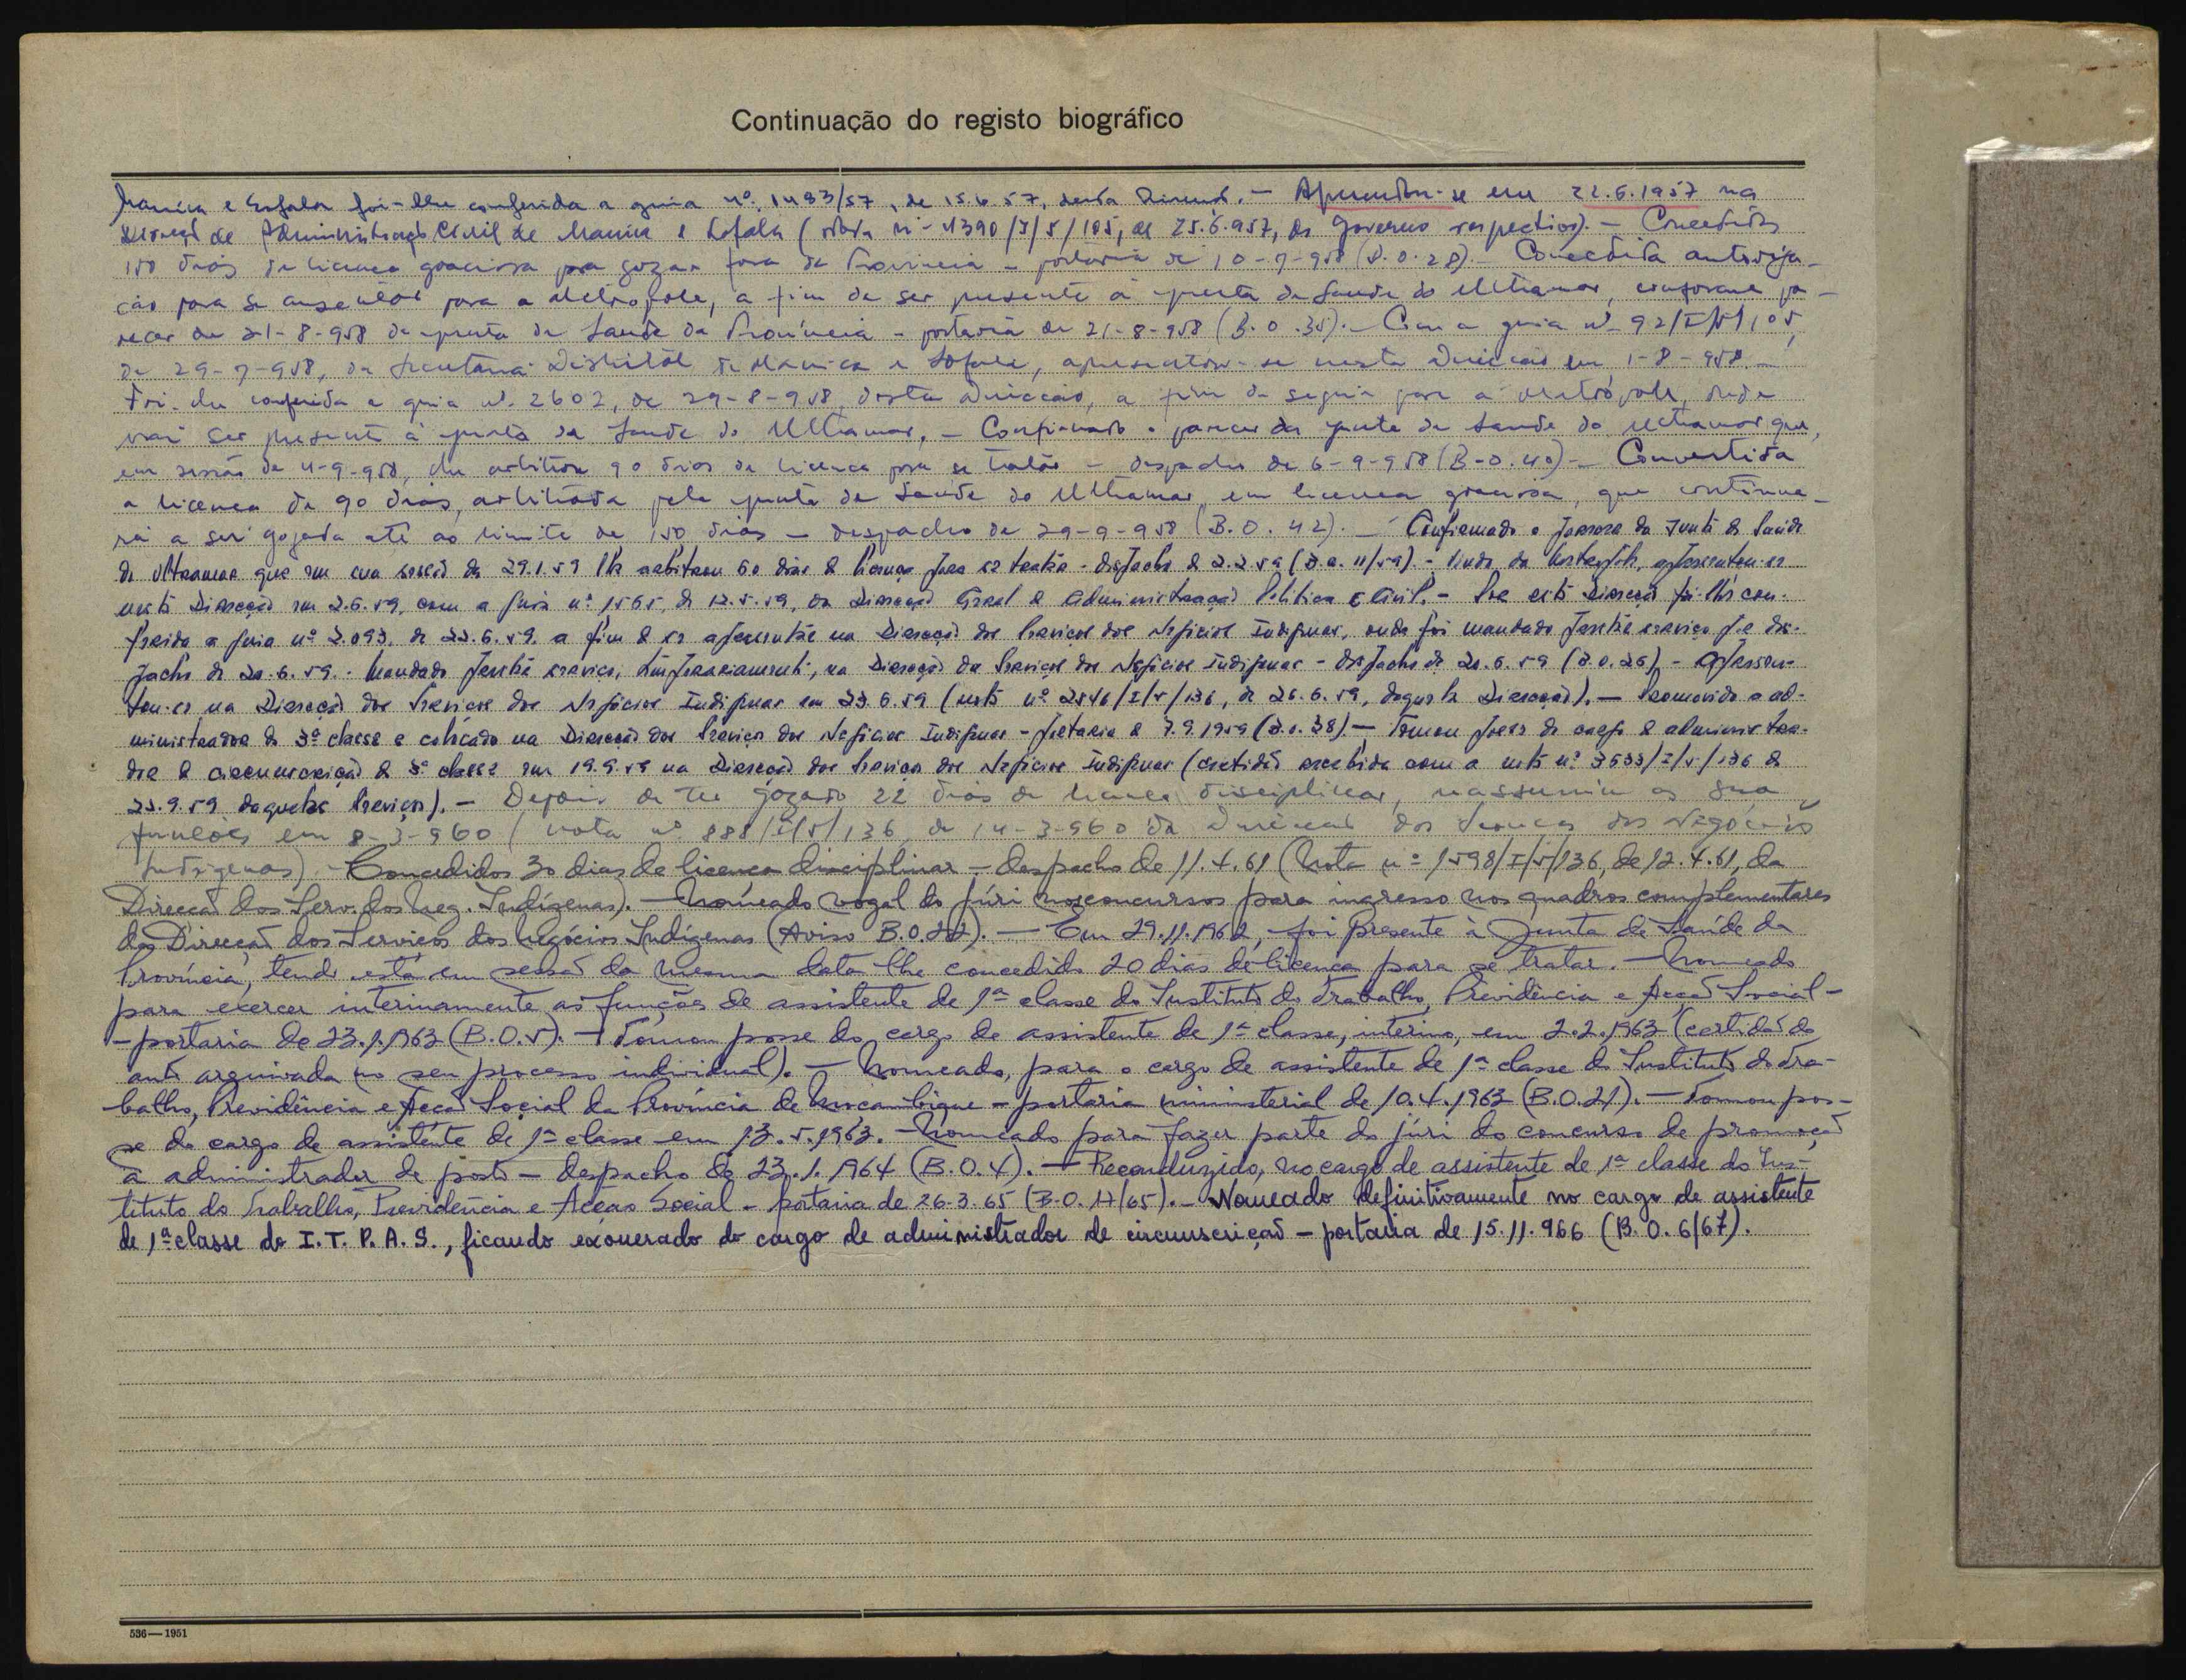 Continuação do registo biográfico
Manica e Sofala foi-lhe conferida a guia nº. 1493/57, de 15.6.57, desta Direcção. — Apresentou-se em 22.6.1957 na
Direcção de Administração Civil de Manica e Sofala (nota nº 4390/I/5/105, de 25.6.957, do Governo respectivo). — Concedidos
150 dias de licença graciosa para gozar fora da Província – portaria de 10-7-958 (B.O. 28). — Concedida autoriza-
ção para se ausentar para a Metrópole, a fim de ser presente à Junta de Saúde do Ultramar, conforme pa-
recer de 21-8-958 da Junta de Saúde da Província – portaria de 21-8-958 (B.O. 35). — Com a guia nº 92/I/5/105,
de 29-7-958, da Secretaria Distrital de Manica e Sofala, apresentou-se nesta Direcção em 1-8-958. —
Foi-lhe conferida a guia nº. 2602, de 29-8-958, desta Direcção, a fim de seguir para a Metrópole, onde
vai ser presente à Junta de Saúde do Ultramar. — Confirmado o parecer da Junta de Saúde do Ultramar que,
em sessão de 4-9-958, lhe arbitrou 90 dias de licença para se tratar – despacho de 6-9-958 (B.O. 40) — Convertida
a licença de 90 dias, arbitrada pela Junta de Saúde do Ultramar, em licença graciosa, que continua-
rá a ser gozada até ao limite de 150 dias – despacho de 29-9-958 (B.O. 42). — Confirmado o parecer da Junta de Saúde
do Ultramar que em sua sessão de 29.1.59 lhe arbitrou 60 dias de licença para se tratar - despacho de 2.2.59 (B.O. 11/59). - Vindo da Metrópole, apresentou-se
nesta Direcção em 2.6.59, com a guia nº 1565, de 12.5.59, da Direcção Geral de Administração Política e Civil. – Por esta Direcção foi-lhe con-
ferida a guia nº 2.093, de 23.6.59, a fim de se apresentar na Direcção dos Serviços dos Negócios Indígenas, onde foi mandado prestar serviço por des-
pacho de 20.6.59. - Mandado prestar serviço, temporariamente, na Direcção dos Serviços dos Negócios Indígenas - despacho de 20.6.59 (B.O. 26). - Apresen-
tou-se na Direcção dos Serviços dos Negócios Indígenas em 23.6.59 (nota nº 2546/I/5/136, de 26.6.59, daquela Direcção). — Promovido a ad-
ministrador de 3ª classe e colocado na Direcção dos Serviços dos Negócios Indígenas - portaria de 7.9.1959 (B.O. 38) — Tomou posse do cargo de administra-
dor de circunscrição de 3ª classe em 19.9.59 na Direcção dos Serviços dos Negócios Indígenas (certidão recebida com a nota nº 3633/I/5/136 de
23.9.59 daqueles Serviços). — Depois de ter gozado 22 dias de licença disciplinar, reassumiu as suas
funções em 8-3-960 (nota nº 888/I/5/136, de 14-3-960 da Direcção dos Serviços dos Negócios
Indígenas) - Concedidos 30 dias de licença disciplinar – despacho de 11.4.61 (Nota nº 1598/I/5/136, de 12.4.61, da
Direcção dos Serv. dos Neg. Indígenas). — Nomeado vogal do júri nos concursos para ingresso nos quadros complementares
da Direcção dos Serviços dos Negócios Indígenas (Aviso B.O. 22). — Em 29.11.1962, foi presente à Junta de Saúde da
Província, tendo esta em sessão da mesma data lhe concedido 20 dias de licença para se tratar. — Nomeado
para exercer interinamente as funções de assistente de 1ª classe do Instituto do Trabalho, Previdência e Acção Social –
– portaria de 23.1.1963 (B.O. 5). — Tomou posse do cargo de assistente de 1ª classe, interino, em 2.2.1963 (certidão do
auto arquivada no seu processo individual). — Nomeado, para o cargo de assistente de 1ª classe do Instituto do Tra-
balho, Previdência e Acção Social da Província de Moçambique – portaria ministerial de 10.4.1963 (B.O. 21). — Tomou pos-
se do cargo de assistente de 1ª classe em 13.5.1963. — Nomeado para fazer parte do júri do concurso de promoção
a administrador de posto – despacho de 23.1.1964 (B.O. 4). — Reconduzido, no cargo de assistente de 1ª classe do Ins-
tituto do Trabalho, Previdência e Acção Social – portaria de 26.3.65 (B.O. 17/65). — Nomeado definitivamente no cargo de assistente
de 1ª classe do I.T.P.A.S., ficando exonerado do cargo de administrador de circunscrição – portaria de 15.11.966 (B.O. 6/67).
536—1951